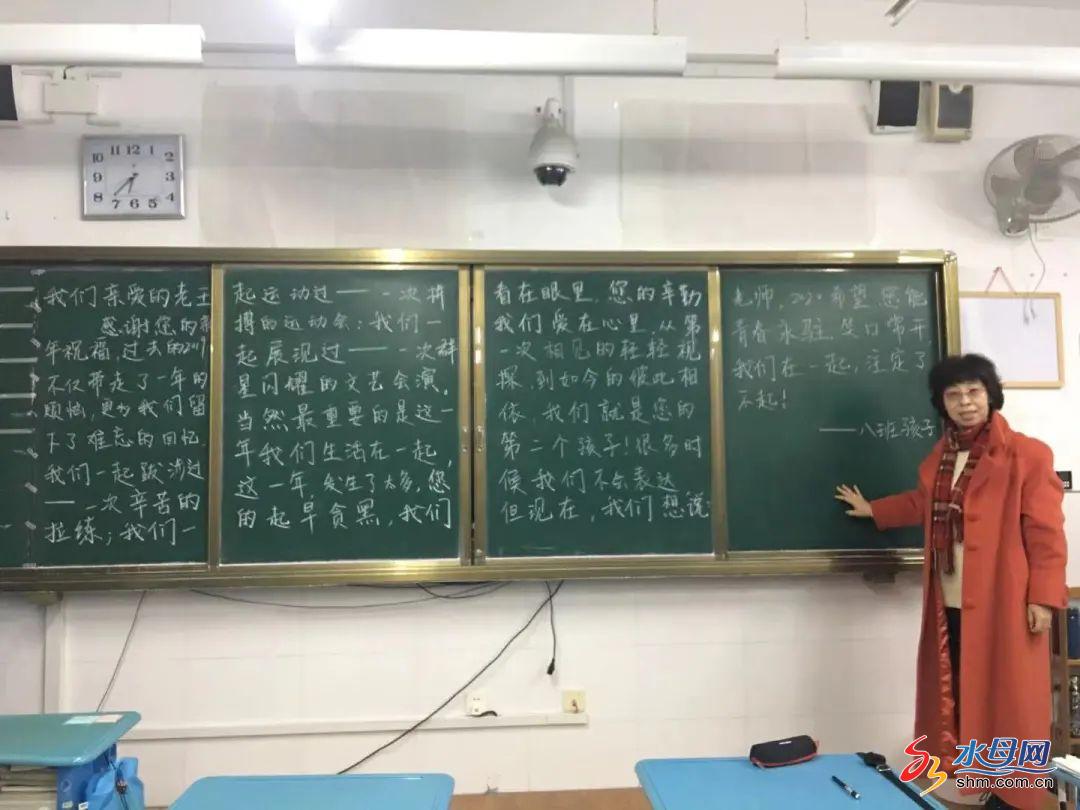 12
11
1
10
2
9
3
8
4
7
5
6
我们亲爱的老王
感谢您的新
年祝福，过去的2019
不仅带走了一年的
烦恼，更为我们留
下了难忘的回忆.
我们一起跋涉过
—— 一次辛苦的
拉练；我们一
起运动过—— 一次拼
搏的运动会；我们一
起展现过—— 一次群
星闪耀的文艺会演。
当然最重要的是这一
年我们生活在一起，
这一年，发生了太多，您
的起早贪黑，我们
看在眼里，您的辛勤
我们爱在心里，从第
一次相见的轻轻视
探，到如今的彼此相
依，我们就是您的
第二个孩子！很多时
候我们不会表达
但现在，我们想说：
老师，2020希望您能
青春永驻，笑口常开
我们在一起，注定了
不起！
——八班孩子
水母网
shm.com.cn